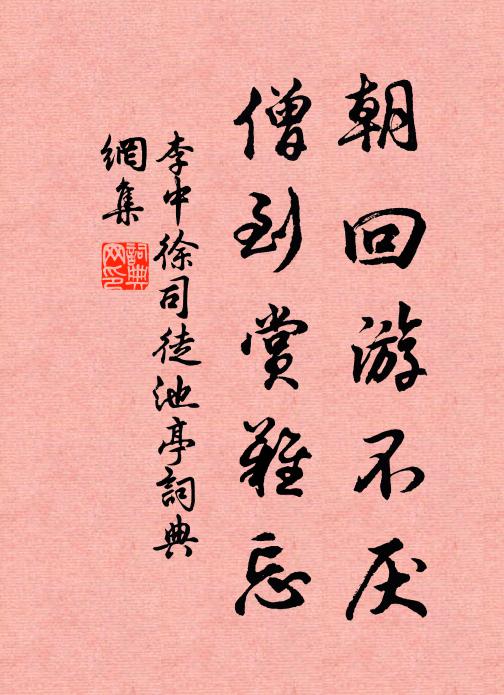 朝回游不厌
僧到賞難忘
李中徐司徒池亭詞典
網集
詞典
网印